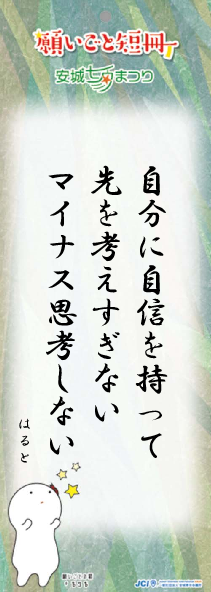 願いごと短冊
安城七夕まつり
自分に自信を持って
先を考えすぎない
マイナス思考しない
はると
JCI